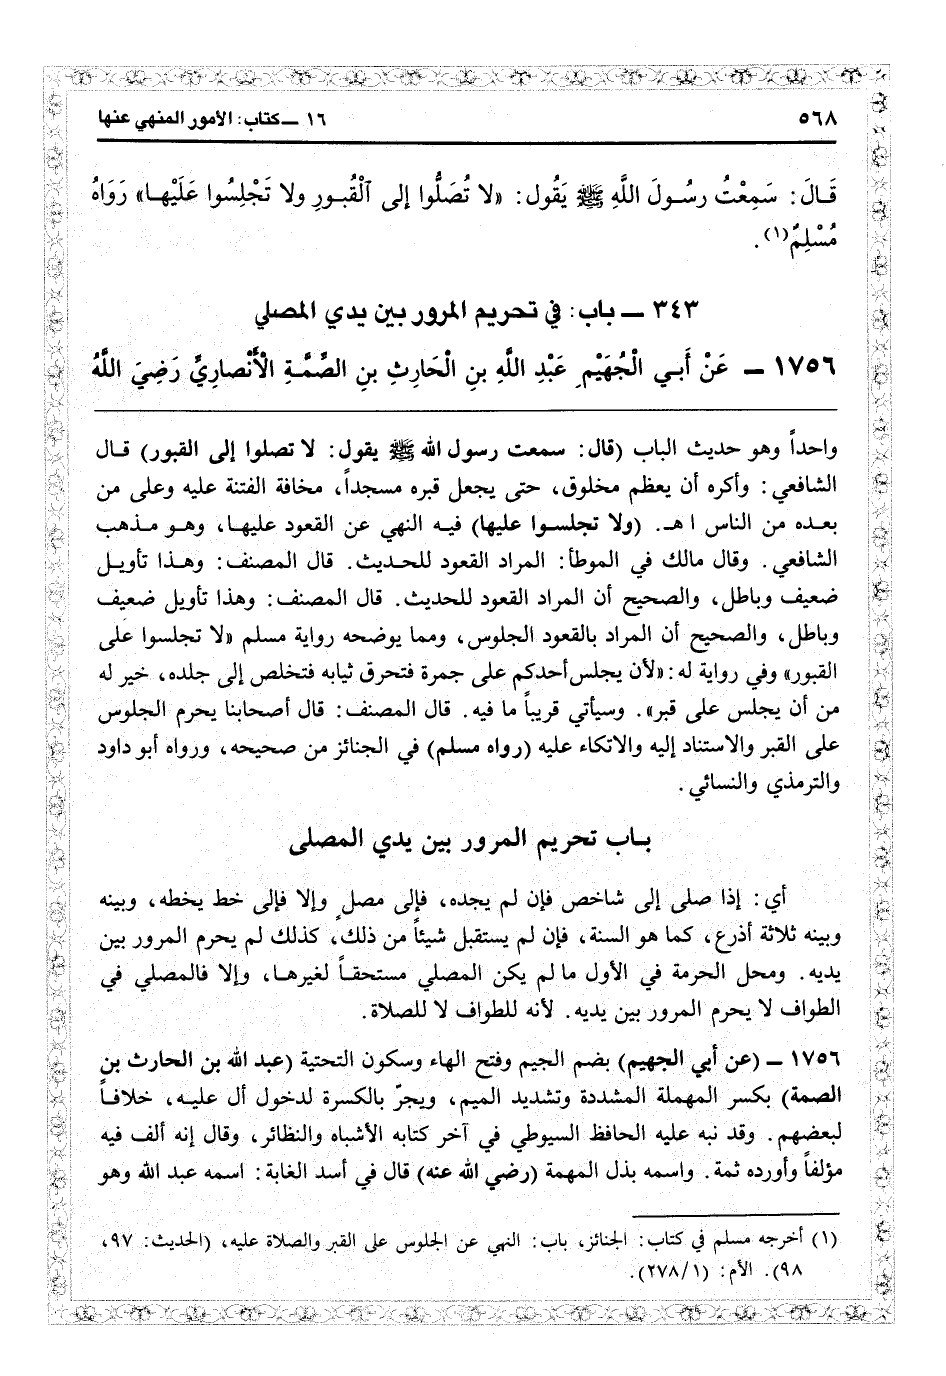 ٥٦٨
١٦ ــ كتاب: الأمور المنهي عنها
قَالَ: سَمِعْتُ رسُولَ اللَّهِ ﷺ يَقُول: «لا تُصَلُّوا إلى ٱلْقُبورِ ولا تَجْلِسُوا عَلَيْها» رَوَاهُ
مُسْلِمٌ(١).
٣٤٣ ــ باب: في تحريم المرور بين يدي المصلي
١٧٥٦ ــ عَنْ أَبي الْجُهَيْمِ عَبْدِ اللَّهِ بنِ الْحَارِثِ بنِ الصِّمَّةِ الْأَنْصارِيِّ رَضِيَ اللَّهُ
واحداً وهو حديث الباب (قال: سمعت رسول الله ﷺ يقول: لا تصلوا إلى القبور) قال
الشافعي: وأكره أن يعظم مخلوق، حتى يجعل قبره مسجداً، مخافة الفتنة عليه وعلى من
بعده من الناس اهـ. (ولا تجلسوا عليها) فيه النهي عن القعود عليها، وهو مذهب
الشافعي. وقال مالك في الموطأ: المراد القعود للحديث. قال المصنف: وهذا تأويل
ضعيف وباطل، والصحيح أن المراد القعود للحديث. قال المصنف: وهذا تأويل ضعيف
وباطل، والصحيح أن المراد بالقعود الجلوس، ومما يوضحه رواية مسلم «لا تجلسوا على
القبور» وفي رواية له: «لأن يجلس أحدكم على جمرة فتحرق ثيابه فتخلص إلى جلده، خير له
من أن يجلس على قبر». وسيأتي قريباً ما فيه. قال المصنف: قال أصحابنا يحرم الجلوس
على القبر والاستناد إليه والاتكاء عليه (رواه مسلم) في الجنائز من صحيحه، ورواه أبو داود
والترمذي والنسائي.
باب تحريم المرور بين يدي المصلى
أي: إذا صلى إلى شاخص فإن لم يجده، فإلى مصلٍ وإلا فإلى خط يخطه، وبينه
وبينه ثلاثة أذرع، كما هو السنة، فإن لم يستقبل شيئاً من ذلك، كذلك لم يحرم المرور بين
يديه. ومحل الحرمة في الأول ما لم يكن المصلي مستحقاً لغيرها، وإلا فالمصلي في
الطواف لا يحرم المرور بين يديه. لأنه للطواف لا للصلاة.
١٧٥٦ ــ (عن أبي الجهيم) بضم الجيم وفتح الهاء وسكون التحتية (عبد الله بن الحارث بن
الصمة) بكسر المهملة المشددة وتشديد الميم، ويجرّ بالكسرة لدخول أل عليه، خلافاً
لبعضهم. وقد نبه عليه الحافظ السيوطي في آخر كتابه الأشباه والنظائر، وقال إنه ألف فيه
مؤلفاً وأورده ثمة. واسمه بذل المهمة (رضي الله عنه) قال في أسد الغابة: اسمه عبد الله وهو
(١) أخرجه مسلم في كتاب: الجنائز، باب: النهي عن الجلوس على القبر والصلاة عليه، (الحديث: ٩٧،
٩٨). الأم: (٢٧٨/١).